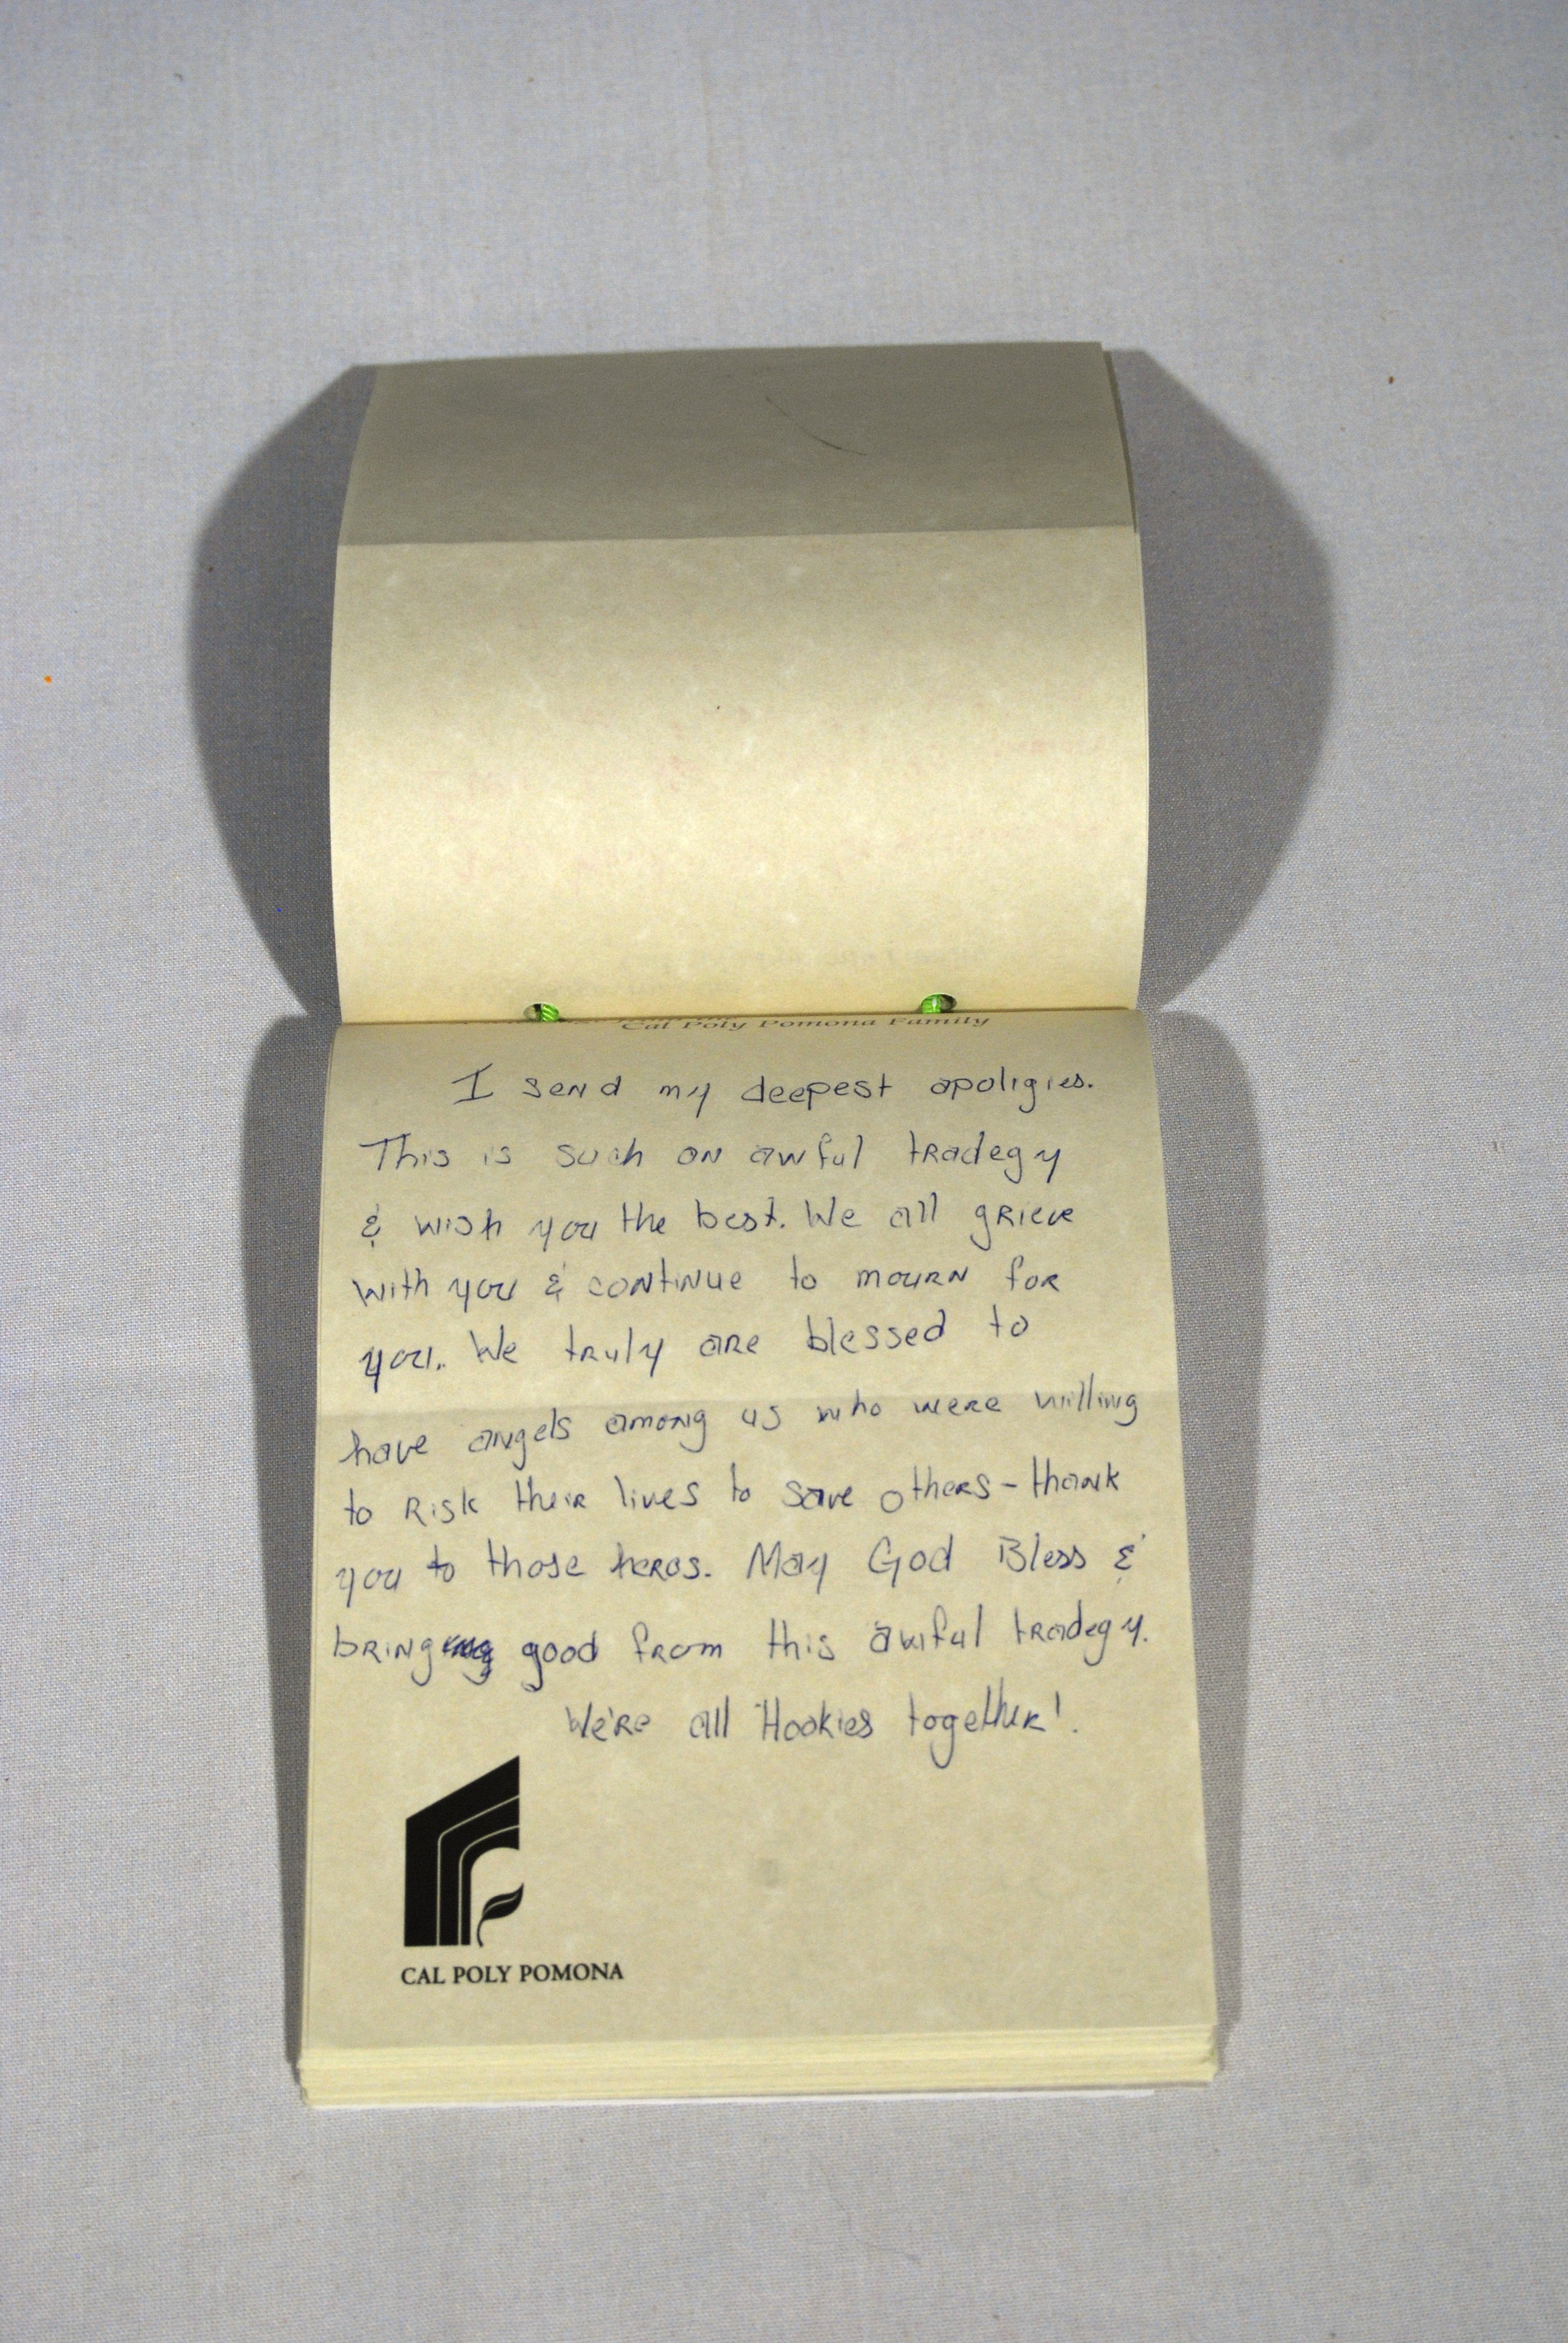 Cal Poly Pomona Family
I send my deepest apoligies.
This is such an awful tradegy
& wish you the best. We all grieve
with you & continue to mourn for
you. We truly are blessed to
have angels among us who were willing
to risk their lives to save others - thank
you to those heros. May God Bless &
bring good from this awful tradegy.
We're all Hookies together!
CAL POLY POMONA